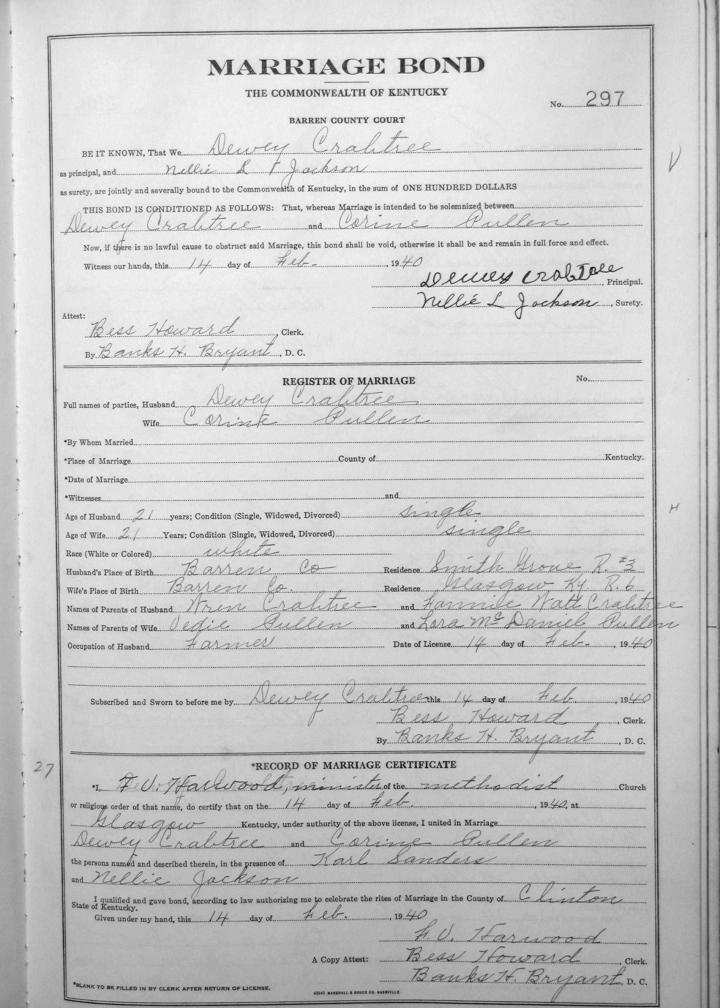 MARRIAGE BOND
THE COMMONWEALTH OF KENTUCKY
No. 297
BARREN COUNTY COURT
BE IT KNOWN, That We Dewey Crabtree
as principal, and Nellie L Jackson
as surety, are jointly and severally bound to the Commonwealth of Kentucky, in the sum of ONE HUNDRED DOLLARS
THIS BOND IS CONDITIONED AS FOLLOWS: That, whereas Marriage is intended to be solemnized between
Dewey Crabtree and Corine Pullen
Now, if there is no lawful cause to obstruct said Marriage, this bond shall be void, otherwise it shall be and remain in full force and effect.
Witness our hands, this 14 day of Feb. , 1940
Dewey Crabtree , Principal.
Nellie L Jackson , Surety.
Attest:
Bess Howard , Clerk.
By Banks H. Bryant , D. C.
REGISTER OF MARRIAGE No.
Full names of parties, Husband Dewey Crabtree
Wife Corine Pullen
*By Whom Married
*Place of Marriage County of Kentucky.
*Date of Marriage
*Witnesses and
Age of Husband 21 years; Condition (Single, Widowed, Divorced) single
Age of Wife 21 Years; Condition (Single, Widowed, Divorced) single
Race (White or Colored) white
Husband's Place of Birth Barren Co Residence Smith Grove R. #3
Wife's Place of Birth Barren Co. Residence Glasgow Ky R. 6
Names of Parents of Husband Wren Crabtree and Watt Crabtree
Names of Parents of Wife Pullen and Lora McDaniel Pullen
Occupation of Husband Farmer Date of License 14 day of Feb- , 1940
Subscribed and Sworn to before me by Dewey Crabtree this 14 day of Feb. , 1940
Bess Howard , Clerk.
By Banks H. Bryant , D. C.
27
*RECORD OF MARRIAGE CERTIFICATE
*I, F. V. Harwood, minister of the methodist Church
or religious order of that name, do certify that on the 14 day of Feb. , 1940, at
Glasgow Kentucky, under authority of the above license, I united in Marriage
Dewey Crabtree and Corine Pullen
the persons named and described therein, in the presence of Karl Sanders
and Nellie Jackson
I qualified and gave bond, according to law authorizing me to celebrate the rites of Marriage in the County of Clinton
State of Kentucky.
Given under my hand, this 14 day of Feb. , 1940
F. V. Harwood
A Copy Attest: Bess Howard , Clerk.
Banks H. Bryant , D. C.
*BLANK TO BE FILLED IN BY CLERK AFTER RETURN OF LICENSE.
MARSHALL & BRUCE CO. NASHVILLE